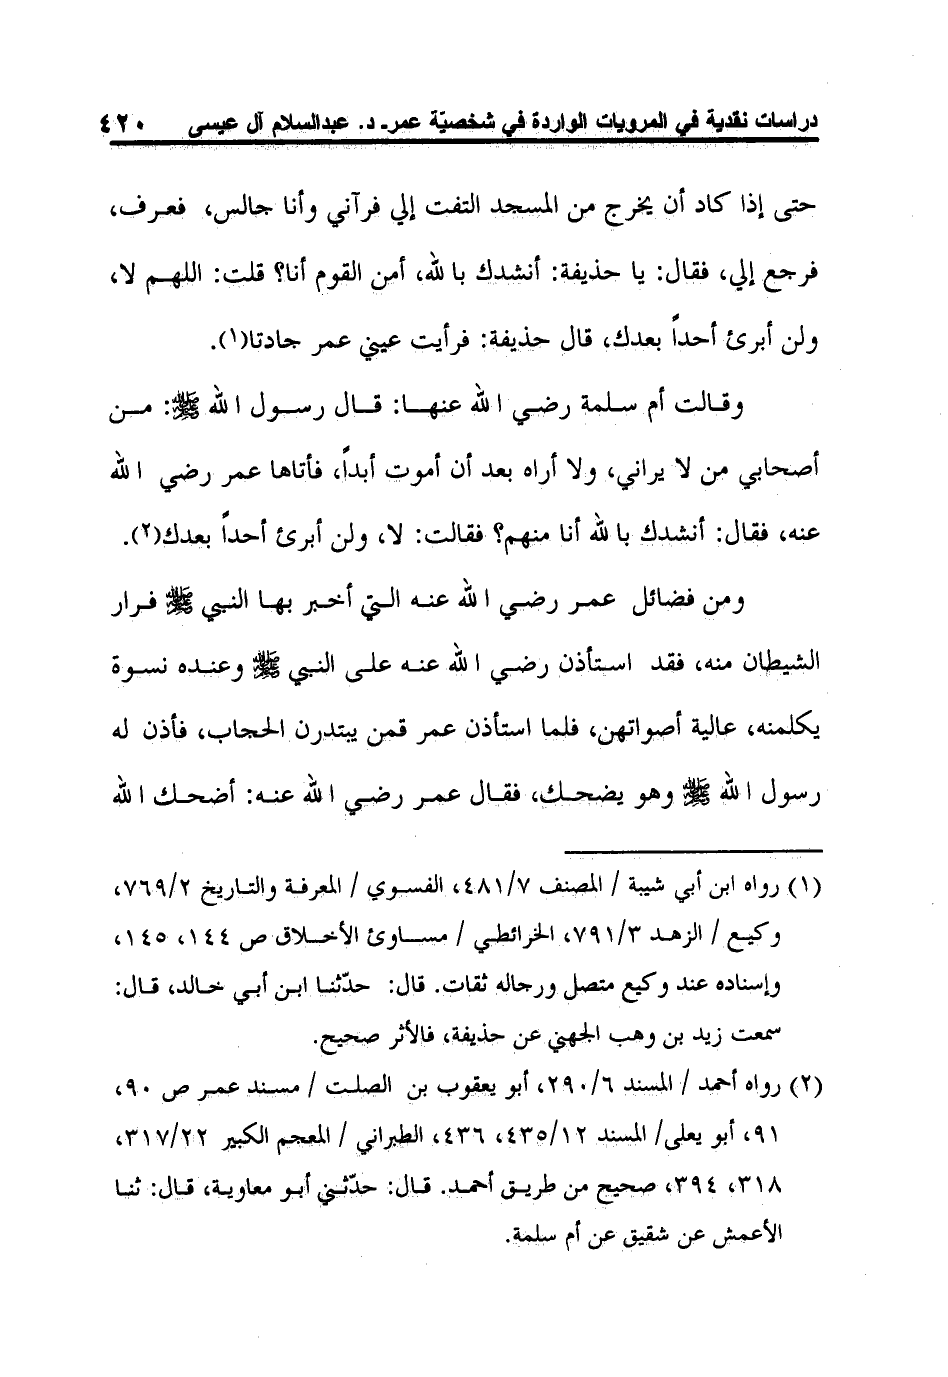 دراسات نقدية في المرويات الواردة في شخصيّة عمر ـ د. عبدالسلام آل عيسى ٤٢٠
حتى إذا كاد أن يخرج من المسجد التفت إلي فرآني وأنا جالس، فعرف،
فرجع إلي، فقال: يا حذيفة: أنشدك بالله، أمن القوم أنا؟ قلت: اللهم لا،
ولن أبرئ أحداً بعدك، قال حذيفة: فرأيت عيني عمر جادتا(١).
وقالت أم سلمة رضي الله عنها: قال رسول الله ﷺ: من
أصحابي من لا يراني، ولا أراه بعد أن أموت أبداً، فأتاها عمر رضي الله
عنه، فقال: أنشدك بالله أنا منهم؟ فقالت: لا، ولن أبرئ أحداً بعدك(٢).
ومن فضائل عمر رضي الله عنه التي أخبر بها النبي ﷺ فرار
الشيطان منه، فقد استأذن رضي الله عنه على النبي ﷺ وعنده نسوة
يكلمنه، عالية أصواتهن، فلما استأذن عمر قمن يبتدرن الحجاب، فأذن له
رسول الله ﷺ وهو يضحك، فقال عمر رضي الله عنه: أضحك الله
(١) رواه ابن أبي شيبة / المصنف ٤٨١/٧، الفسوي / المعرفة والتاريخ ٧٦٩/٢،
وكيع / الزهد ٧٩١/٣، الخرائطي / مساوئ الأخلاق ص ١٤٤، ١٤٥،
وإسناده عند وكيع متصل ورجاله ثقات. قال: حدّثنا ابن أبي خالد، قال:
سمعت زيد بن وهب الجهني عن حذيفة، فالأثر صحيح.
(٢) رواه أحمد / المسند ٢٩٠/٦، أبو يعقوب بن الصلت / مسند عمر ص ٩٠،
٩١، أبو يعلى/ المسند ٤٣٥/١٢، ٤٣٦، الطبراني / المعجم الكبير ٣١٧/٢٢،
٣١٨، ٣٩٤، صحيح من طريق أحمد. قال: حدّثني أبو معاوية، قال: ثنا
الأعمش عن شقيق عن أم سلمة.